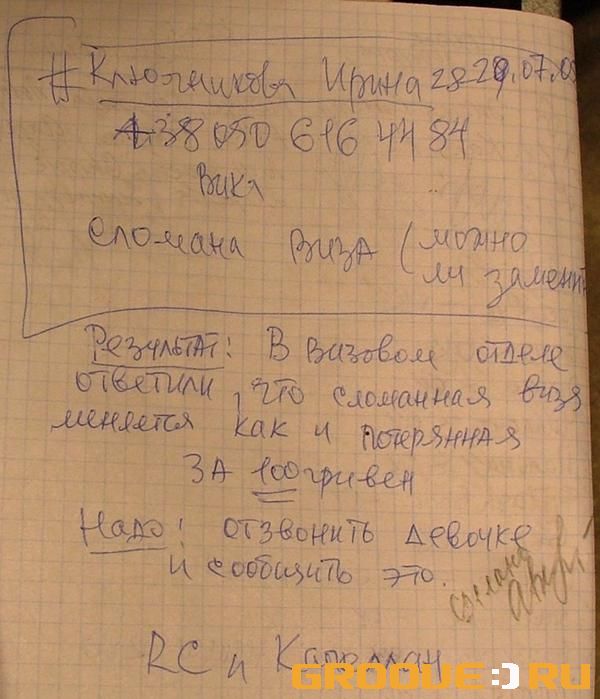 # Ключникова Ирина 28 29.07.0
+38 050 616 44 84
Вика
сломана виза (можно
ли заменит
Результат: В визовом отделе
ответили, что сломанная виза
меняется как и потерянная
ЗА 100 гривен
Надо: отзвонить девочке
и сообщить это.
сделано
RC и Капеллан
GROOVE:)RU